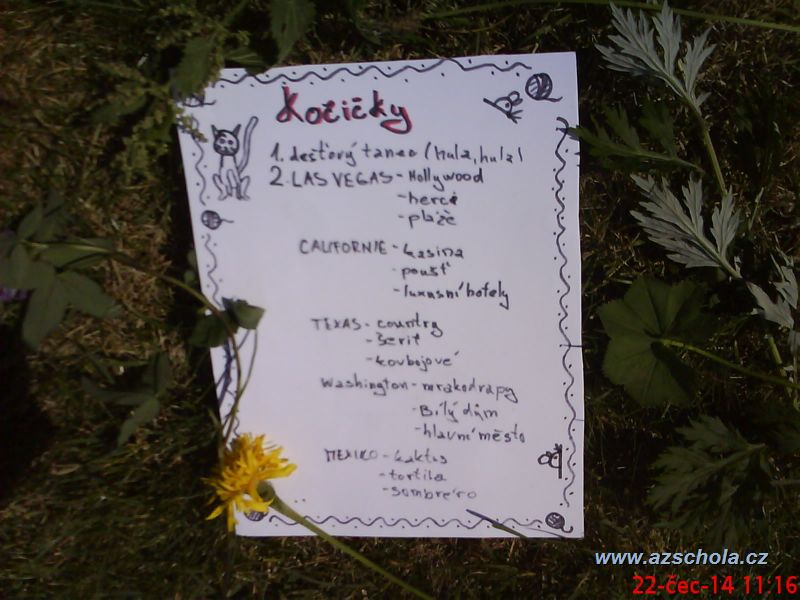 Kočičky
1. dešťový tanec (hula, hula)
2. LAS VEGAS - Hollywood
- herci
- pláže
CALIFORNIE - kasina
- poušť
- luxusní hotely
TEXAS - country
- šerif
- kovbojové
Washington - mrakodrapy
- Bílý dům
- hlavní město
MEXIKO - kaktus
- tortila
- sombréro
www.azschola.cz
22-čec-14 11:16